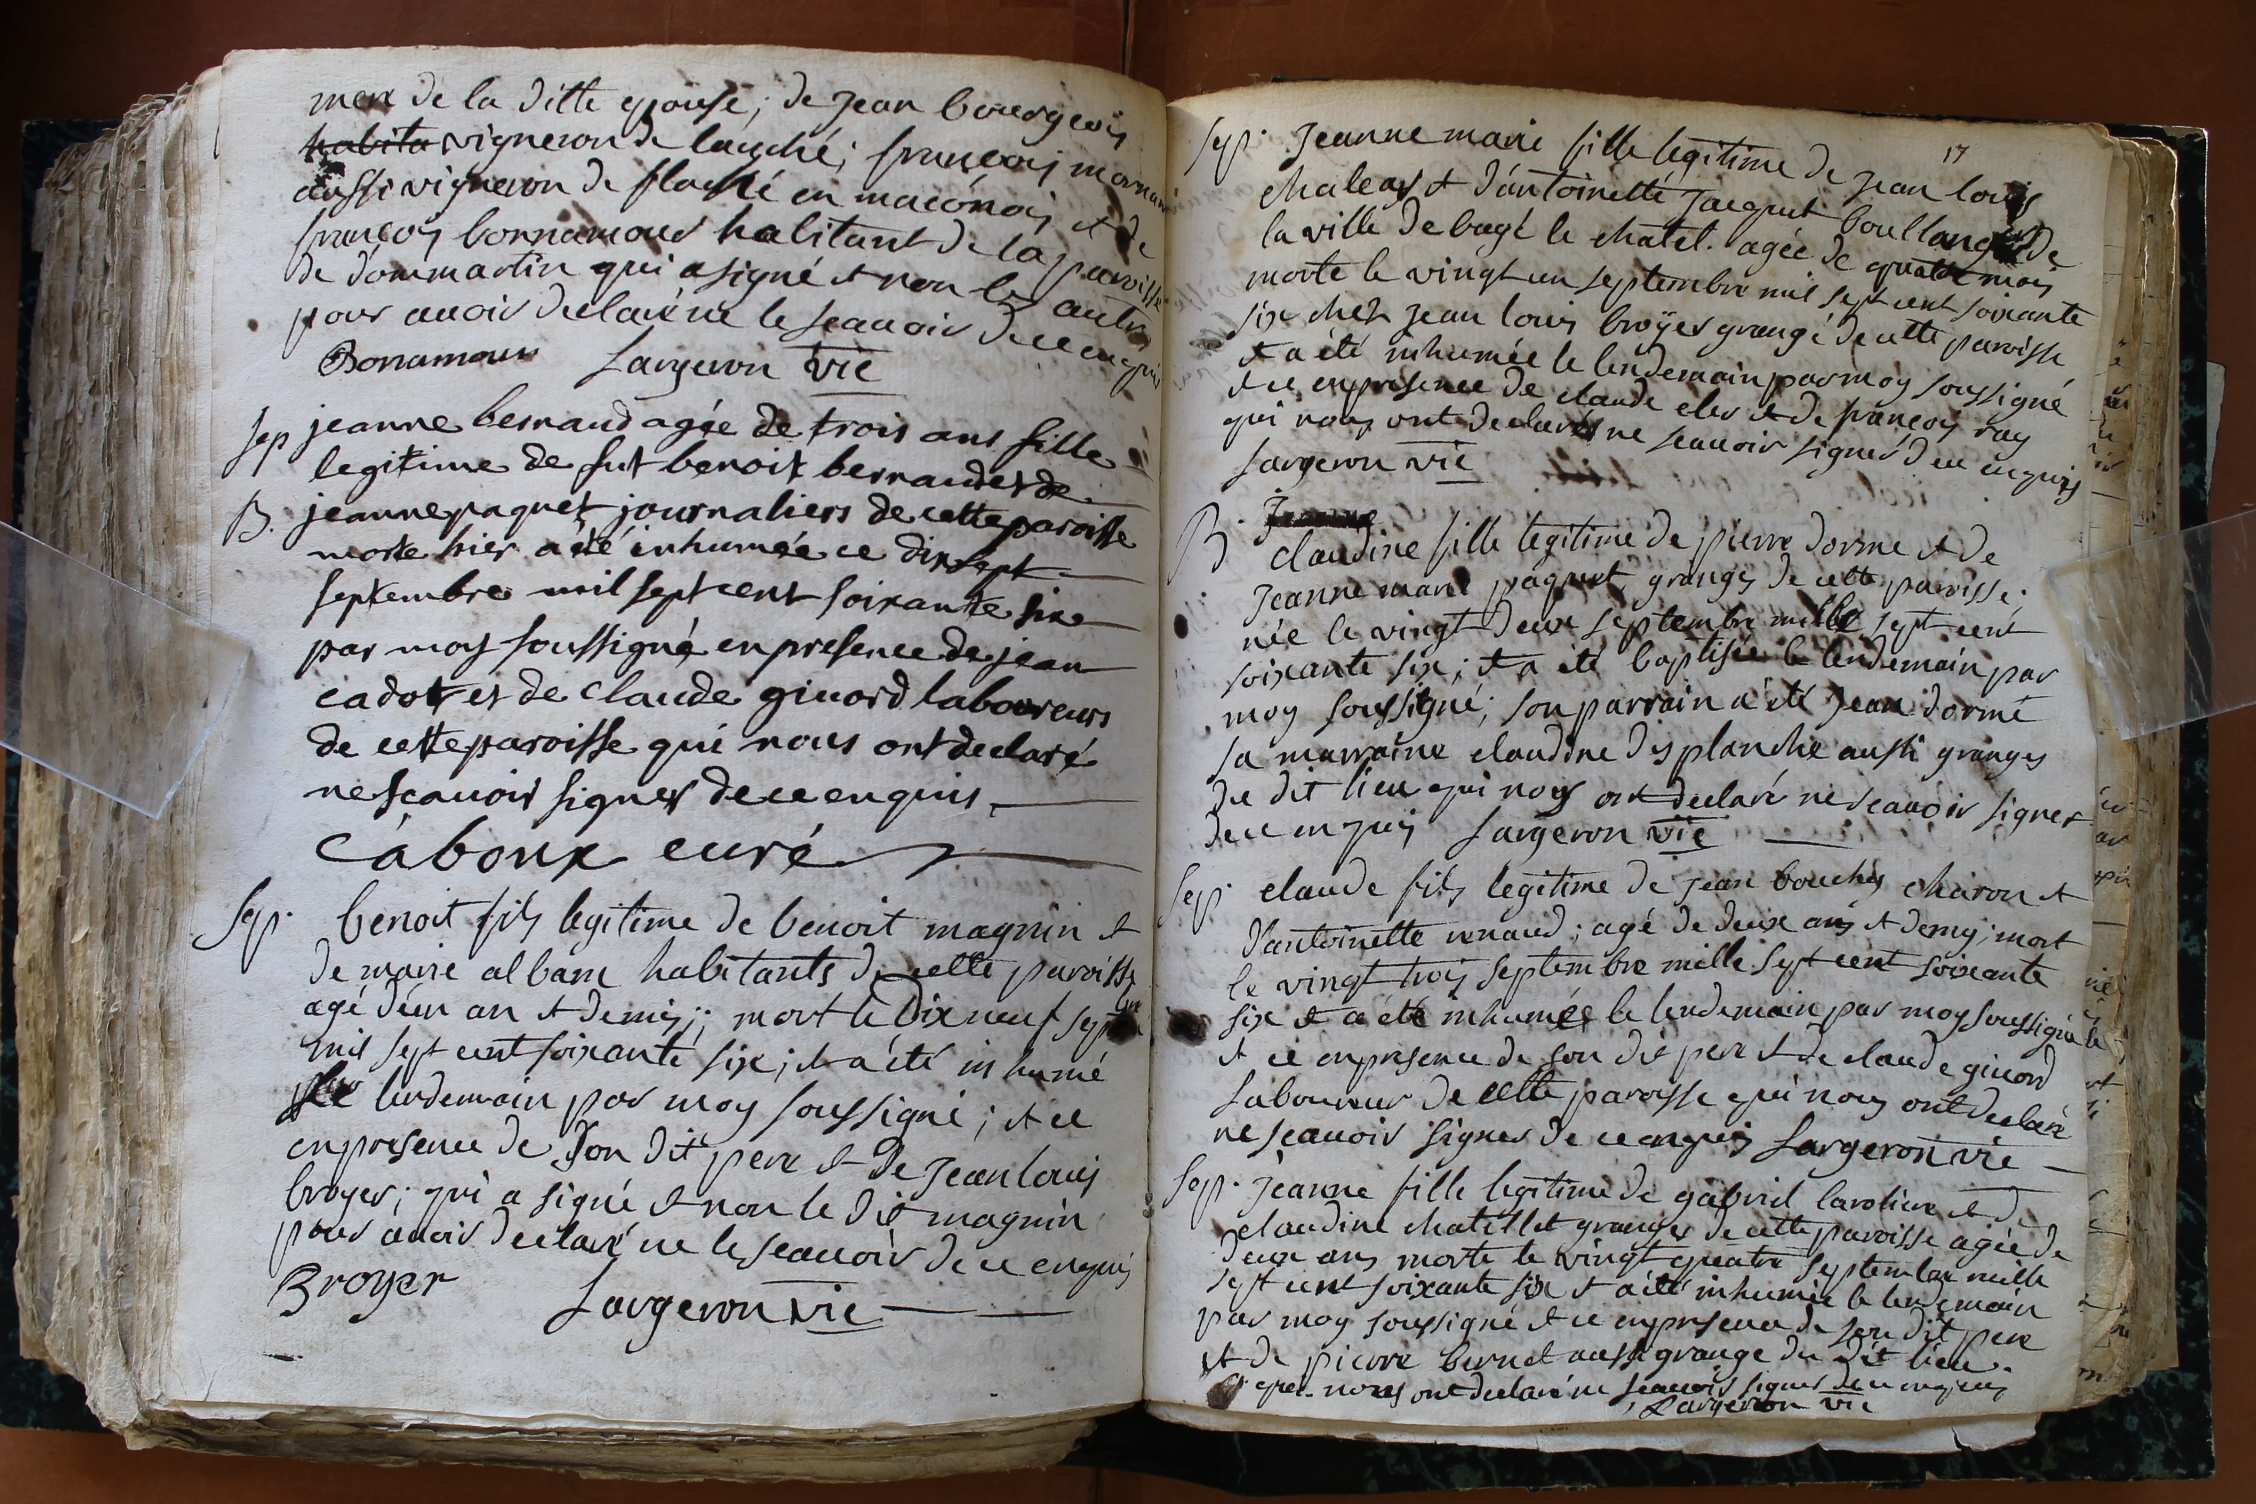 mere de la ditte epouse; de jean bourgeois
habita vigneron de laiyché; françois
aussi vigneron de flacé en maconois et de
françois bonnamour habitant de la paroisse
de dommartin qui a signé et non les autres
pour avoir declaré ne le scavoir de ce enquis
Bonnamour Largeron vic
Sep jeanne bernaud agée de trois ans fille
legitime de fut benoit bernaud et de
B. jeanne paquet journaliers de cette paroisse
morte hier a été inhumée ce dix sept
septembre mil sept cent soixante six
par moy soussigné en presence de jean
cadot et de claude givord laboureurs
de cette paroisse qui nous ont declaré
ne scavoir signer de ce enquis
Caboux curé
Sep. benoit fils legitime de benoit magnin et
de marie albam habitants de cette paroisse
agé d'un an et demis; mort le dix neuf sept
mil sept cent soixante six; et a été inhumé
le lendemain par moy soussigné; et ce
en presence de son dit pere et de Jean louis
broyer; qui a signé et non le dit magnin
pour avoir declaré ne le scavoir de ce enquis
Broyer Largeron vic
17
Sep. Jeanne marie fille legitime de jean louis
chaleas et d'antoinette jacquet boullangers de
la ville de bagé le chatel. agée de quatre mois
morte le vingt un septembre mil sept cent soixante
six chez jean louis broÿer grangé de cette paroisse
et a été inhumée le lendemain par moy soussigné
et ce en presence de claude cler et de françois ray
qui nous ont declarés ne scavoir signer de ce enquis
Largeron vic
B. Jeanne
claudine fille legitime de pierre dorme et de
Jeanne marie paquet granges de cette paroisse;
née le vingt deux septembre mille sept cent
soixante six; et a été baptisée le lendemain par
moy soussigné; son parrain a été Jean dorme
sa marraine claudine desplanche aussi granges
du dit lieu qui nous ont declaré ne scavoir signer
de ce enquis Largeron vic
Sep. claude fils legitime de jean bouchy charon et
d'antoinette renaud; agé de deux ans et demy; mort
le vingt trois septembre mille sept cent soixante
six et a été inhumée le lendemain par moy soussigné
et ce en presence de son dit pere et de claude givord
Laboureur de cette paroisse qui nous ont declaré
ne scavoir signer de ce enquis Largeron vic
Sep. jeanne fille legitime de gabriel laroliere et de
claudine chatellet granges de cette paroisse agée de
deux ans morte le vingt quatre septembre mille
sept cent soixante six et a été inhumée le lendemain
par moy soussigné et ce en presence de son dit pere
et de pierre bernet aussi grange du dit lieu.
qui nous ont declaré ne scavoir signer de ce enquis
Largeron vic